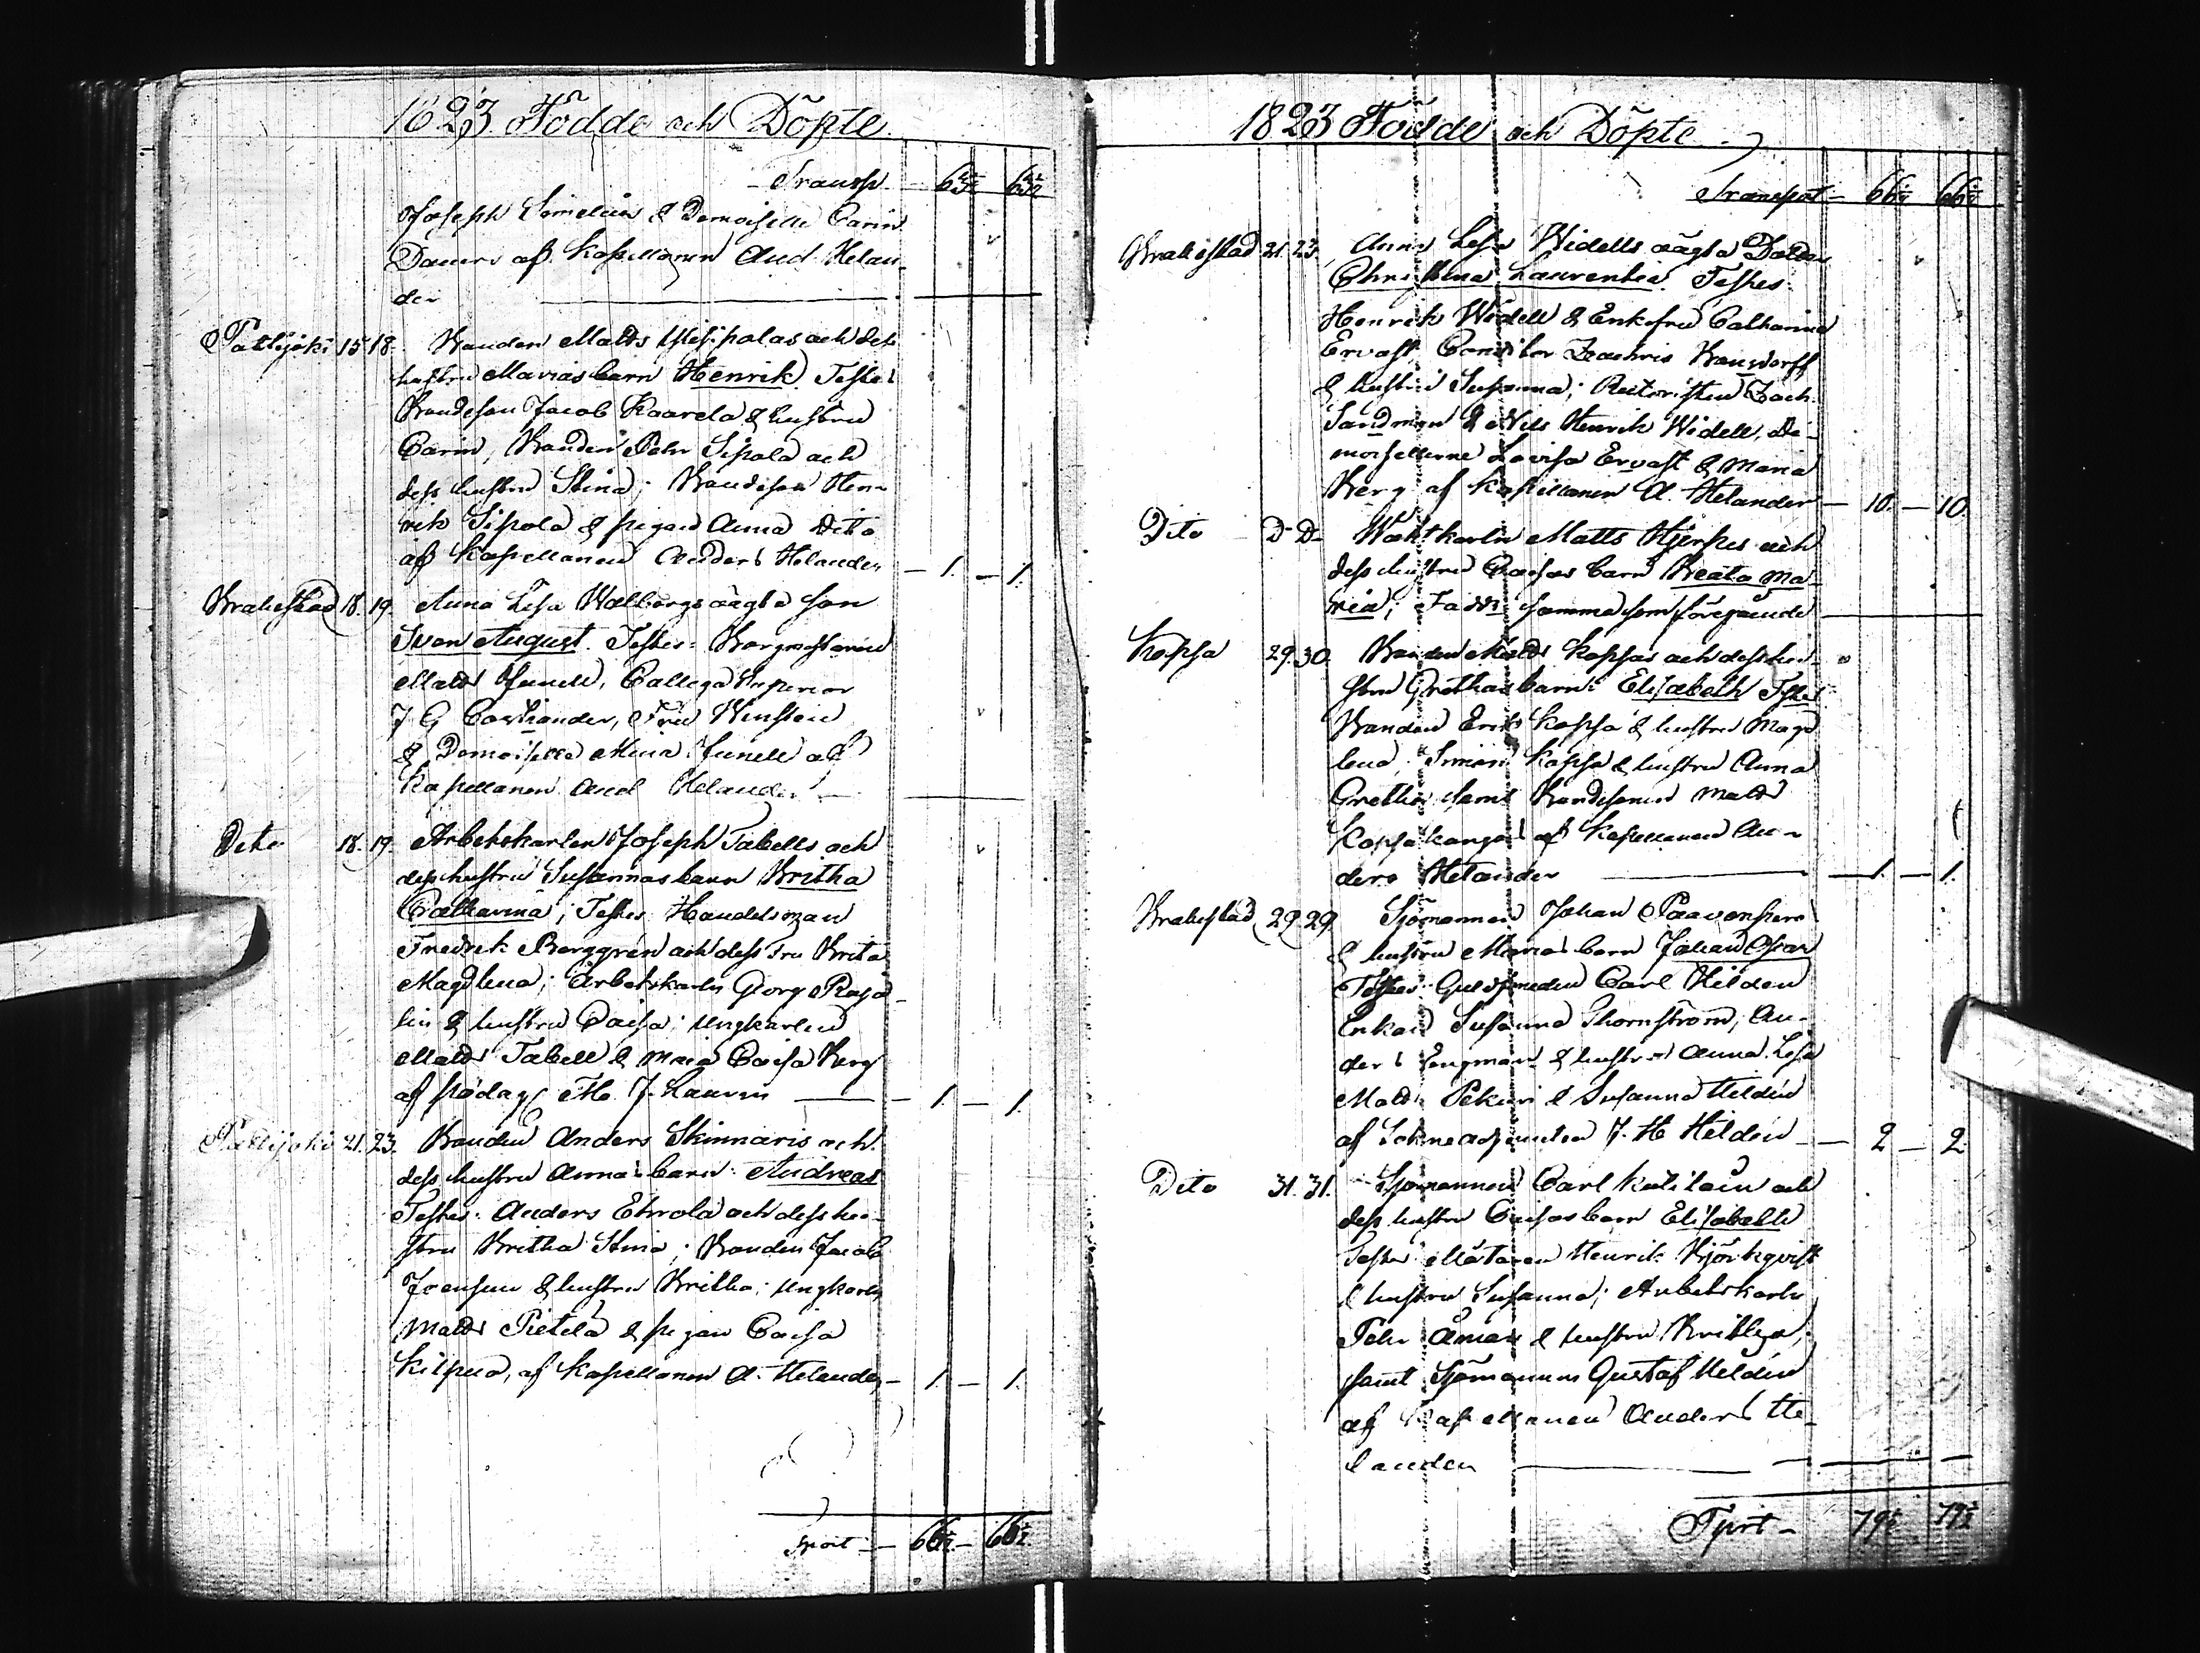 1823 Födde och Döpte
Transp. — 63½ 63½
Joseph Simelius & Demoiselle Carin
Dauers af Kapellanen And. Helan-
der
Pattijoki 15. 18. Bonden Matts Ylisipolas och dess
hustru Marias barn Henrik. Testes
Bondeson Jacob Kaarela & hustru
Carin, Bonden Pehr Sipola och
dess hustru Stina; Bondeson Hen-
rik Sipola & pigan Anna Dito
af Kapellanen Anders Helander — 1. — 1.
Brahestad 18. 19. Anna Lisa Walbergs oägta son
Sven August. Testes: Borgmästaren
Matts Junell, Collega Superior
J G Costiander, Fru
& Demoiselle Mina Junell af
Kapellanen And Helander —
Dito 18. 19. Arbetskarlen Joseph Tabells och
dess hustru Susannas barn Britha
Catharina; Testes Handelsman
Fredrik Berggren och dess Fru Brita
Magdlena; Arbetskarln Georg Raja-
lin & hustru Caisa; Ungkarlen
Matts Tabell & Maja Caisa Berg
af J. Lauren — 1. — 1.
Pattijoki 21. 23. Bonden Anders Skinnaris och
dess hustru Annas barn: Andreas
Testes: Anders Ehrola och dess hu-
stru Britha Stina; Bonden Jacob
Joensuu & hustru Britha; Ungkarln
Matts Pietilä & pigan Caisa
Kilpua, af Kapellanen A. Helander — 1. — 1.
Tport — 66½ — 66½
1823 Födde och Döpte
Transport — 66½ 66½
Brahestad 21. 23. Anna Lisa Widells oägta Dotter
Christina Laurentia. Testes.
Henrik Widell & Enkefru Catharina
Ervast, Conditor Zachris
& hustru Susanna; Zach.
Sandman & Nils Henrik Widell, De-
moisellerne Lovisa Ervast & Maria
Berg af Kapellanen A. Helander — 10. — 10.
Dito D- D- Waktkarln Matts Hjerpes och
dess hustru Caisas barn Beata Ma-
ria; Faddr samma som föregående
Kopsa 29. 30. Bonden Matts Kopsas och dess hu-
stru Grethas barn: Elisabeth Testes
Bonden Erik Kopsa & hustru Magd
lena, Simon Kopsa & hustru Anna
Gretha samt Bondesonen Matts
Kopsakangas af Kapellanen An-
ders Helander — 1. — 1.
Brahestad 29. 29. Sjömannen Johan Paavonperä
& hustru Marias barn Johan Oscar
Testes: Guldsmeden Carl Hilden
Enkan Susanna Thornström, An-
ders Engman & hustru Anna Lisa
Matts Pekuri & Susanna Helden
af Sokneadjunten J. H. Helden — 2 — 2
Dito 31. 31. Sjömannen Carl och
dess hustru Caisas barn Elisabeth
Testes Målaren Henrik Björkqvist
& hustru Susanna; Arbetskarln
Pehr Åman & hustru Britha,
samt Sjömannen Gustaf Helden
af Kapellanen Anders He-
lander —
Tprt — 79½ 79½